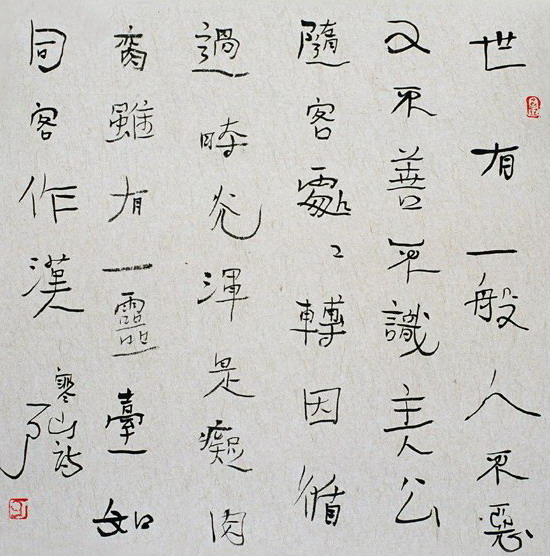 世有一般人不惡
又不善不識主人公
隨客處〻轉因循
過時光渾是癡肉
臠雖有一靈臺如
同客作漢
寒山詩